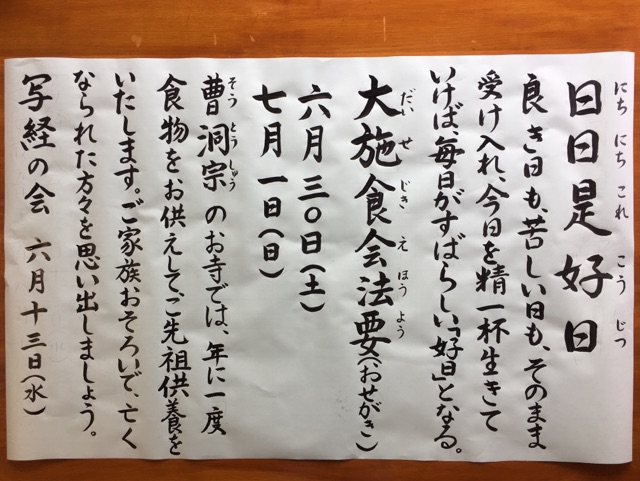 日日是好日
にち にち これ こう じつ
良き日も、苦しい日も、そのまま
受け入れ、今日を精一杯生きて
いけば、毎日がすばらしい「好日」となる。
大施食会法要(おせがき)
だい せ じき え ほう よう
六月 三〇日(土)
七月 一日(日)
曹洞宗のお寺では、年に一度
そう とう しゅう
食物をお供えして、ご先祖供養を
いたします。ご家族おそろいで、亡く
なられた方々を思い出しましょう。
写経の会 六月十三日(水)